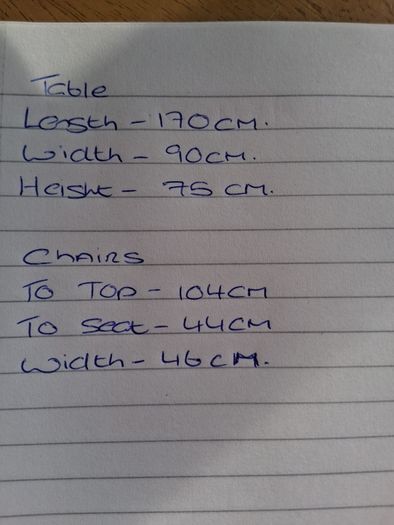 Table
Length - 170cm.
Width - 90cm.
Height - 75cm.
Chairs
To Top - 104cm
To Seat - 44cm
Width - 46cm.